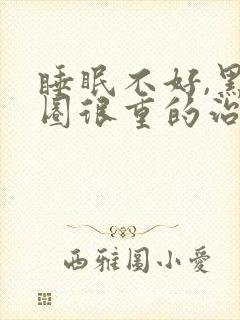 睡眠不好,黑
圈很重的治
西雅图小爱